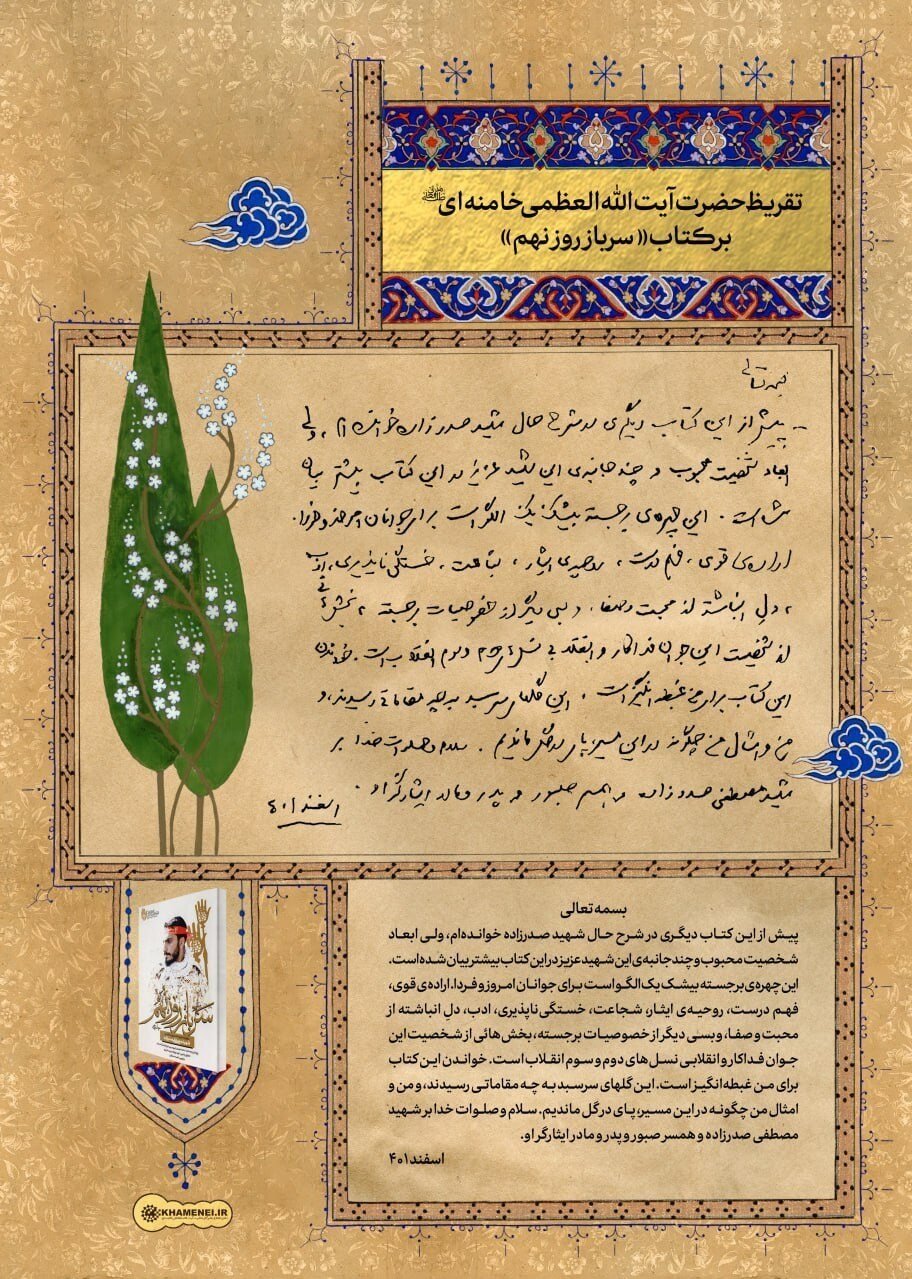 تقریظ حضرت آیت الله العظمی خامنه ای
بر کتاب «سرباز روز نهم»
بسمه تعالی
- پیش از این کتاب دیگری در شرح حال شهید صدرزاده خوانده‌ام، ولی
ابعاد شخصیت محبوب و چند جانبه‌ی این شهید عزیز در این کتاب بیشتر بیان
شده است. این چهره‌ی برجسته بیشک یک الگو است برای جوانان امروز و فردا.
اراده‌ی قوی، فهم درست، روحیه‌ی ایثار، شجاعت، خستگی ناپذیری، ادب
، دلِ انباشته از محبت و صفا، و بسی دیگر از خصوصیات برجسته، بخش هائی
از شخصیت این جوان فداکار و انقلابی نسل های دوم و سوم انقلاب است. خواندن
این کتاب برای من غبطه انگیز است. این گلهای سرسبد به چه مقاماتی رسیدند، و
من و امثال من چگونه در این مسیر، پای در گل ماندیم. سلام و صلوات خدا بر
شهید مصطفی صدرزاده و همسر صبور و پدر و مادر ایثارگر او.
اسفند ۴۰۱
بسمه تعالی
پیش از این کتاب دیگری در شرح حال شهید صدرزاده خوانده‌ام، ولی ابعاد
شخصیت محبوب و چند جانبه‌ی این شهید عزیز در این کتاب بیشتر بیان شده است.
این چهره‌ی برجسته بیشک یک الگو است برای جوانان امروز و فردا. اراده‌ی قوی،
فهم درست، روحیه‌ی ایثار، شجاعت، خستگی ناپذیری، ادب، دلِ انباشته از
محبت و صفا، و بسی دیگر از خصوصیات برجسته، بخش هائی از شخصیت این
جوان فداکار و انقلابی نسل های دوم و سوم انقلاب است. خواندن این کتاب
برای من غبطه انگیز است. این گلهای سرسبد به چه مقاماتی رسیدند، و من و
امثال من چگونه در این مسیر، پای در گل ماندیم. سلام و صلوات خدا بر شهید
مصطفی صدرزاده و همسر صبور و پدر و مادر ایثارگر او.
اسفند ۴۰۱
سرباز روز نهم
KHAMENEI.IR